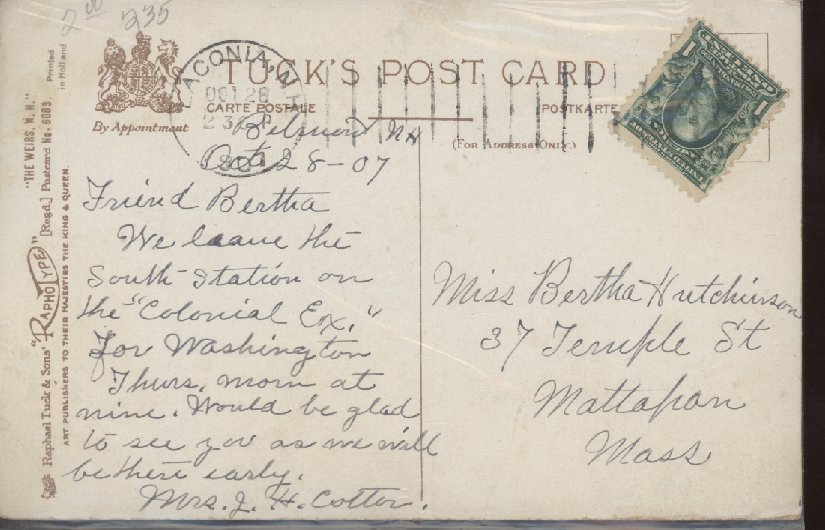 2.00 235
TUCK'S POST CARD
CARTE POSTALE
POSTKARTE
(FOR ADDRESS ONLY.)
By Appointment
LACONIA, N.H.
OCT 28
1907
"THE WEIRS, N. H."
Printed
in Holland
Raphael Tuck & Sons' "RAPHOTYPE" [Regd.] Postcard No. 6083.
ART PUBLISHERS TO THEIR MAJESTIES THE KING & QUEEN.
Belmont NH
Oct 28-07
Friend Bertha
We leave the
South Station on
the "Colonial Ex."
for Washington
Thurs. morn at
nine. Would be glad
to see you as we will
be there early.
Mrs. J. H. Cotter.
Miss Bertha Hutchinson
37 Temple St
Mattapan
Mass
1 1